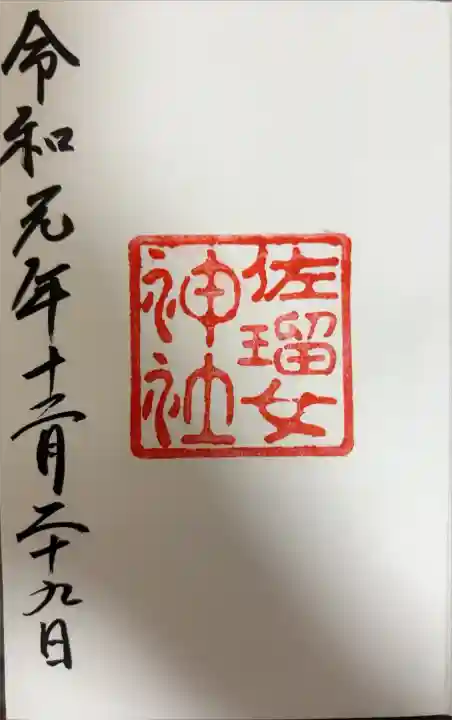 佐瑠女
神社
令和元年十二月二十九日